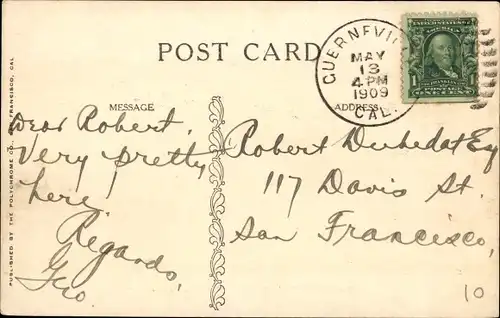 POST CARD
GUERNEVI
MAY
13
4 PM
1909
CAL.
MESSAGE
ADDRESS
Dear Robert,
Very pretty
here!
Regards,
Geo.
Robert Dubedat Esq
117 Davis St.
San Francisco,
10
PUBLISHED BY THE POLYCHROME CO., SAN FRANCISCO, CAL.